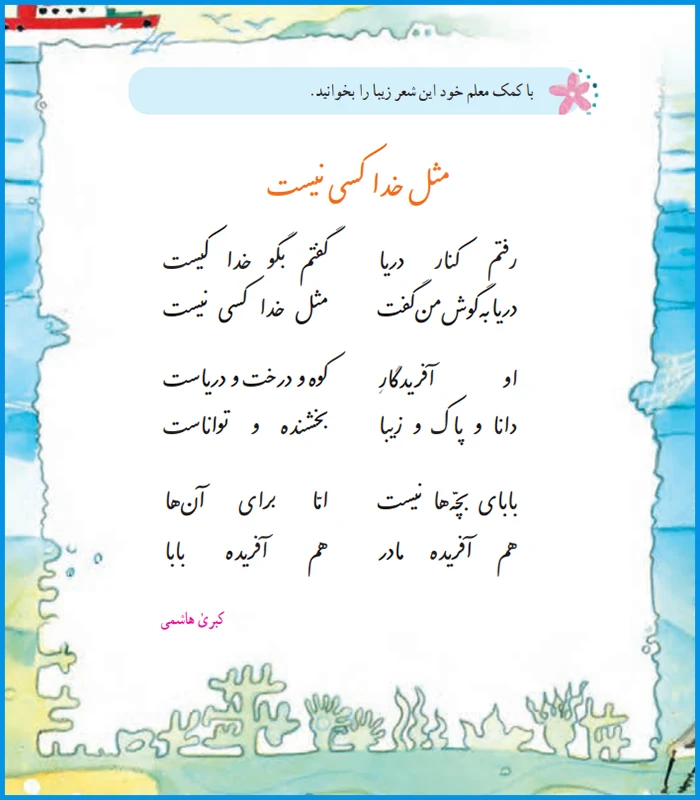 با کمک معلم خود این شعر زیبا را بخوانید.
مثل خدا کسی نیست
رفتم کنار دریا گفتم بگو خدا کیست
دریا به گوش من گفت مثل خدا کسی نیست
او آفریدگارِ کوه و درخت و دریاست
دانا و پاک و زیبا بخشنده و تواناست
بابای بچّه‌ها نیست امّا برای آن‌ها
هم آفریده مادر هم آفریده بابا
کبریٰ هاشمی